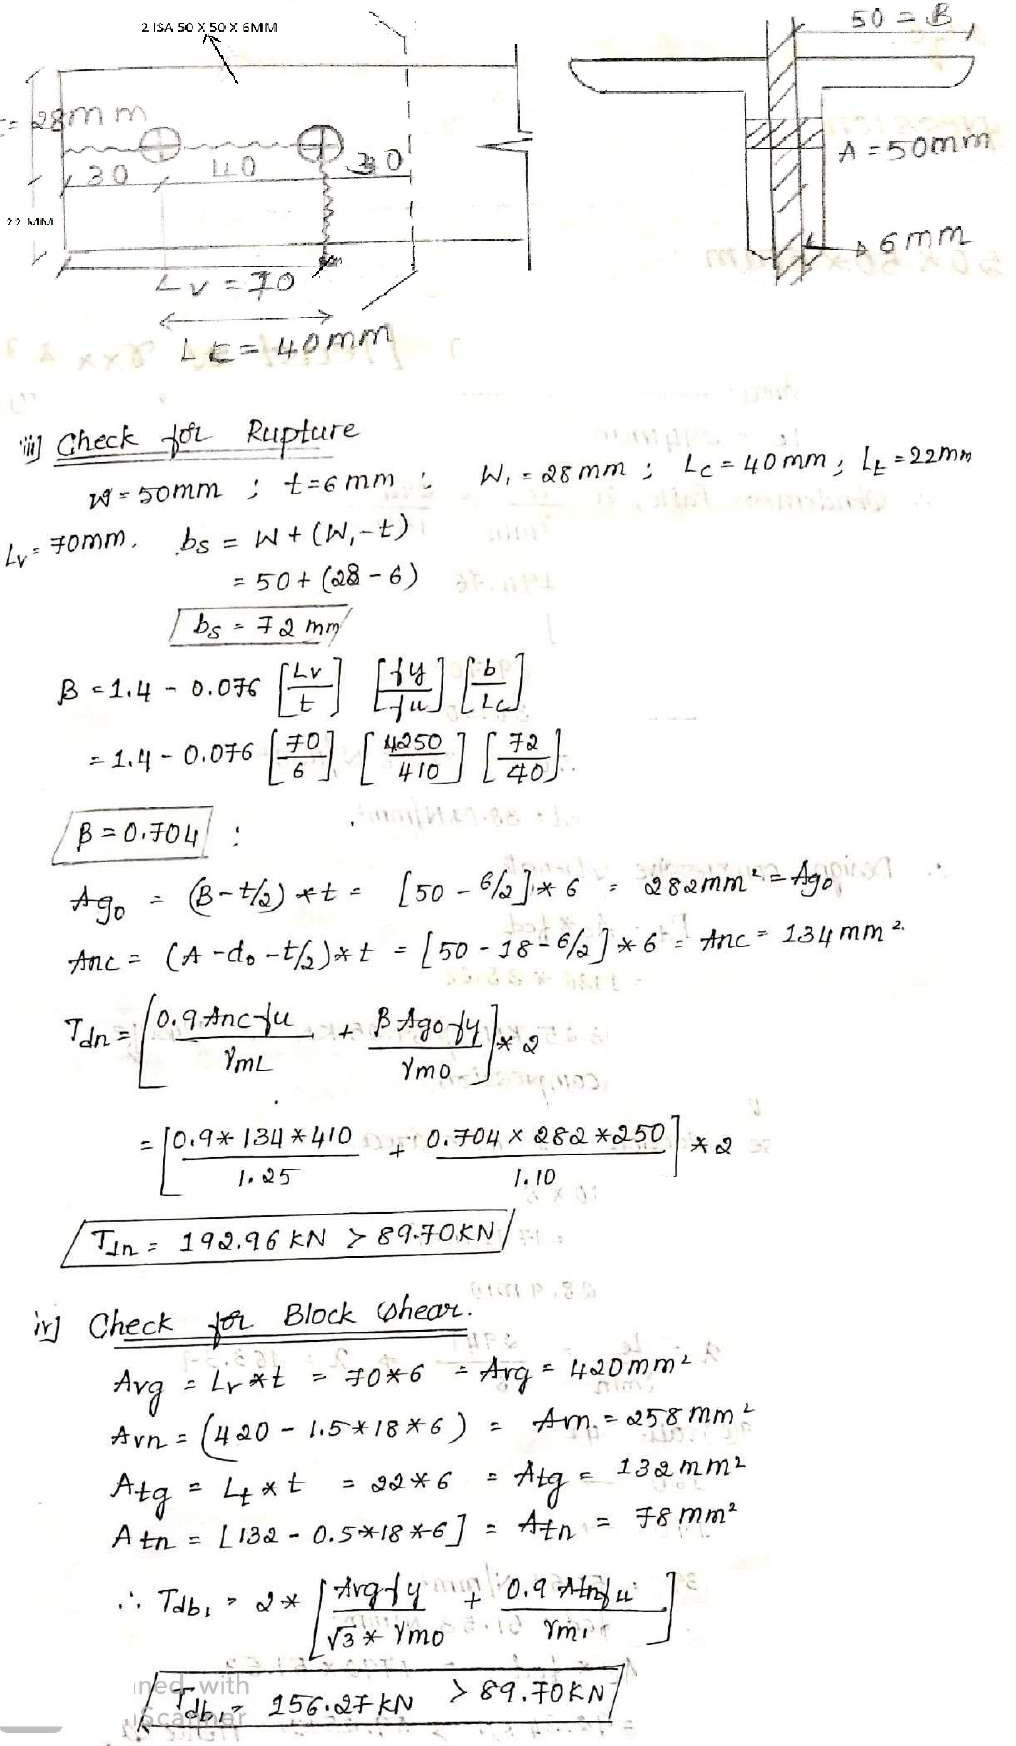 2 ISA 50 X 50 X 6MM
50 = B
= 28mm
A = 50mm
30 40 30
22 MM
6mm
Lv = 70
Lc = 40mm
iii] Check for Rupture
W = 50mm ; t = 6mm ; W₁ = 28mm ; Lc = 40mm ; Lt = 22mm
Lv = 70mm. bs = W + (W₁ - t)
= 50 + (28 - 6)
bs = 72 mm
β = 1.4 - 0.076 [Lv/t] [fy/fu] [b/Lc]
= 1.4 - 0.076 [70/6] [250/410] [72/40]
β = 0.704 :
Ago = (B - t/2) * t = [50 - 6/2] * 6 = 282mm² = Ago
Anc = (A - do - t/2) * t = [50 - 18 - 6/2] * 6 = Anc = 134mm².
Tdn = [0.9 Anc fu / γmL + β Ago fy / γmo] * 2
= [0.9 * 134 * 410 / 1.25 + 0.704 x 282 * 250 / 1.10] * 2
Tdn = 192.96 KN > 89.70KN
iv] Check for Block shear.
Avg = Lv * t = 70 * 6 = Avg = 420mm²
Avn = (420 - 1.5 * 18 * 6) = Avn. = 258mm²
Atg = Lt * t = 22 * 6 = Atg = 132mm²
Atn = [132 - 0.5 * 18 * 6] = Atn = 78mm²
∴ Tdb₁ = 2 * [Avg fy / √3 * γmo + 0.9 Atn fu / γm₁]
Tdb₁ = 156.27 KN > 89.70KN